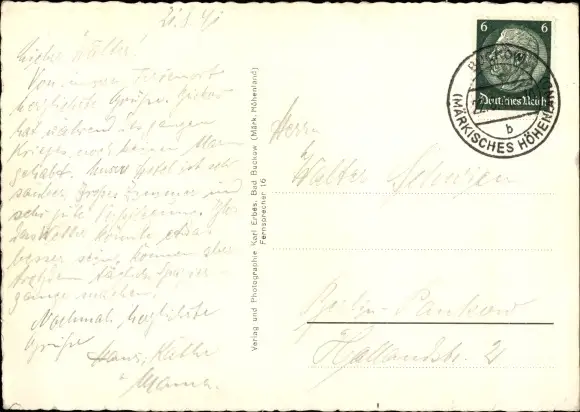 Lieber Walter!
Von unserem Ferienort
herzlichste Grüße.
hat während des ganzen
Krieges noch keinen Alarm
gehabt. Unser Hotel ist sehr
sauber, große Zimmer und
sehr gute Verpflegung.
Das Wetter könnte etwas
besser sein, können aber
trotzdem täglich Spazier-
gänge machen.
Nochmals herzlichste
Grüße
Hans, Käthe
u. Mama.
Verlag und Photographie Karl Erbes, Bad Buckow (Märk. Höhenland)
Fernsprecher 16
6 6
Deutsches Reich
BUCKOW
(MÄRKISCHES HÖHENLAND)
b
Herrn
Walter
Berlin-Pankow
Hallandstr. 21